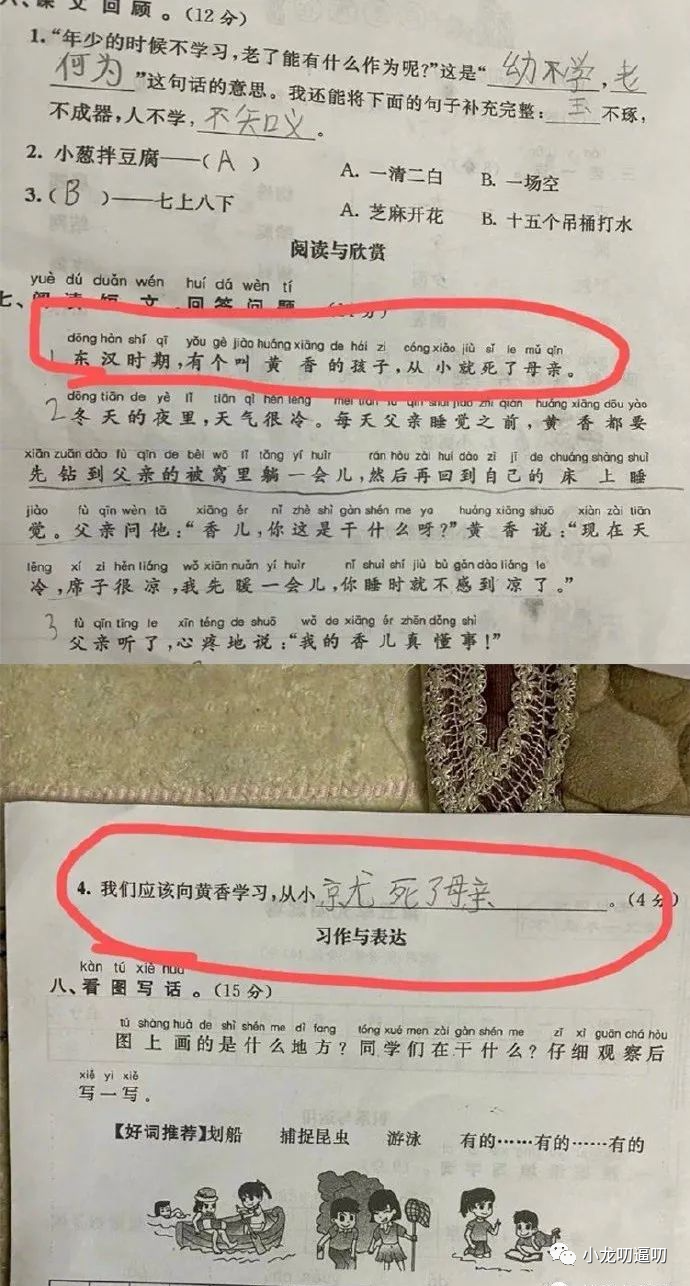 六、课文回顾。(12分)
1.“年少的时候不学习,老了能有什么作为呢?”这是“幼不学,老
何为”这句话的意思。我还能将下面的句子补充完整:玉不琢,
不成器,人不学,不知义。
2. 小葱拌豆腐——(A) A. 一清二白 B. 一场空
3.(B)——七上八下 A. 芝麻开花 B. 十五个吊桶打水
阅读与欣赏
yuè dú duǎn wén huí dá wèn tí
七、阅读短文,回答问题
dōng hàn shí qī yǒu gè jiào huáng xiāng de hái zi cóng xiǎo jiù sǐ le mǔ qīn
1 东汉时期,有个叫黄香的孩子,从小就死了母亲。
dōng tiān de yè lǐ tiān qì hěn lěng měi tiān fù qīn shuì jiào zhī qián huáng xiāng dōu yào
2 冬天的夜里,天气很冷。每天父亲睡觉之前,黄香都要
xiān zuān dào fù qīn de bèi wō lǐ tǎng yí huìr rán hòu zài huí dào zì jǐ de chuáng shàng shuì
先钻到父亲的被窝里躺一会儿,然后再回到自己的床上睡
jiào fù qīn wèn tā xiāng ér nǐ zhè shì gàn shén me ya huáng xiāng shuō xiàn zài tiān
觉。父亲问他:“香儿,你这是干什么呀?”黄香说:“现在天
lěng xí zi hěn liáng wǒ xiān nuǎn yí huìr nǐ shuì shí jiù bù gǎn dào liáng le
冷,席子很凉,我先暖一会儿,你睡时就不感到凉了。”
fù qīn tīng le xīn téng de shuō wǒ de xiāng ér zhēn dǒng shì
3 父亲听了,心疼地说:“我的香儿真懂事!”
4. 我们应该向黄香学习,从小就死了母亲。(4分)
习作与表达
kàn tú xiě huà
八、看图写话。(15分)
tú shàng huà de shì shén me dì fang tóng xué men zài gàn shén me zǐ xì guān chá hòu
图上画的是什么地方?同学们在干什么?仔细观察后
xiě yi xiě
写一写。
【好词推荐】划船 捕捉昆虫 游泳 有的……有的……有的
小龙叨逼叨